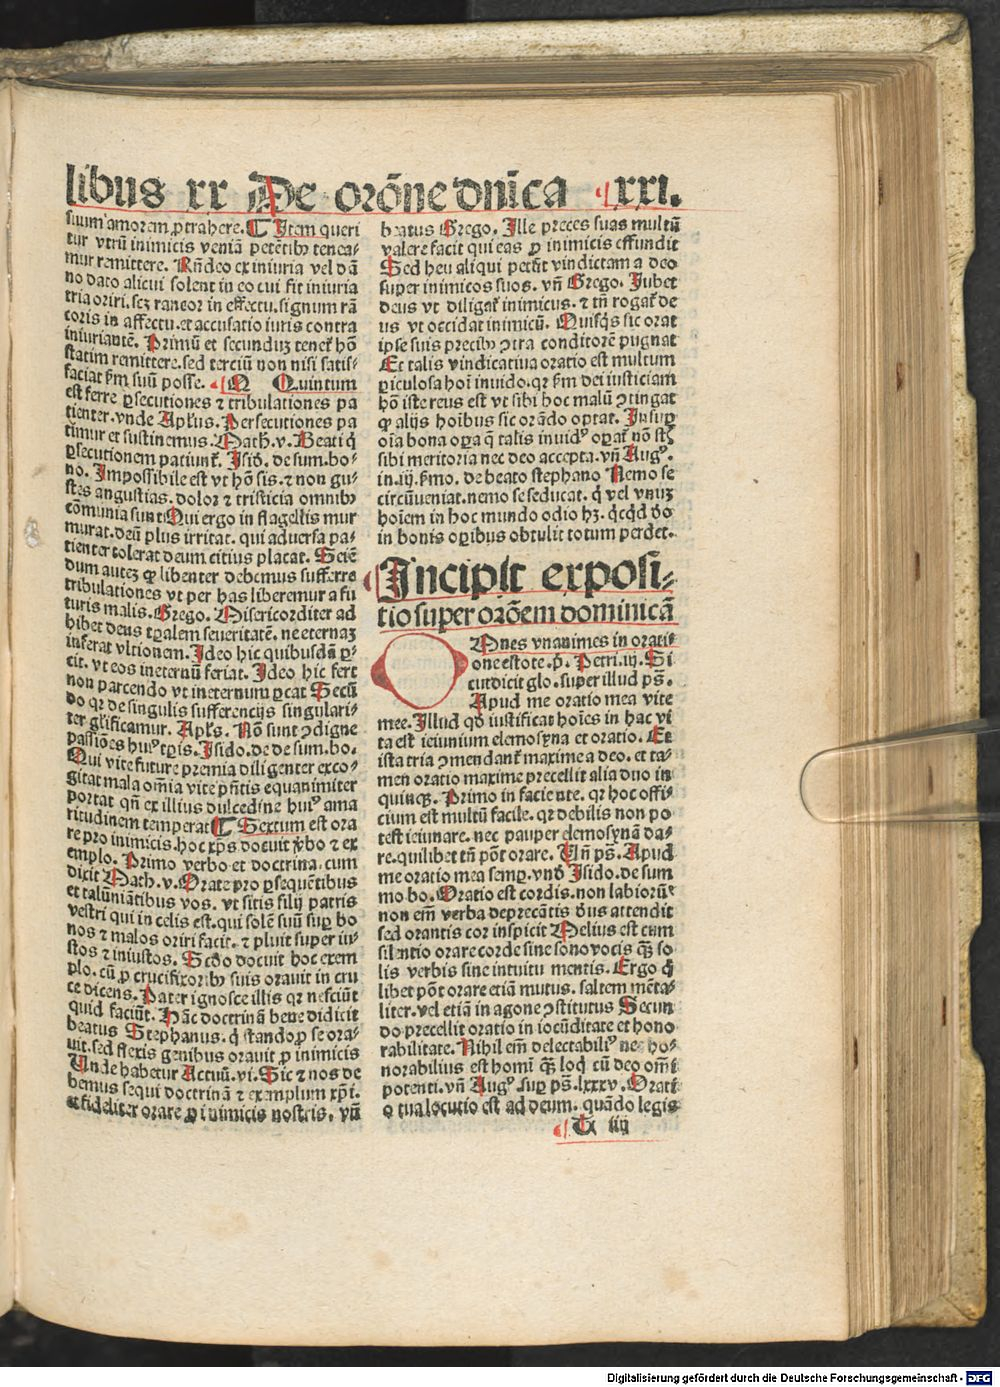 libus xx De orōne dnīca xxi.
suum amorem ꝓtrahere. Item queri
tur vtrū inimicis veniā petētibꝰ tenea⸗
mur remittere. Rn̄deo ex iniuria vel dā
no dato alicui solent in eo cui fit iniuria
tria oriri. scꝫ rancor in effectu. signum rā
coris in affectu. et accusatio iuris contra
iniuriantē. Primū et secunduꝫ tenet̄ hō
statim remittere. sed terciū non nisi satis⸗
faciat ẜm suū posse. N Quintum
est ferre ꝑsecutiones ⁊ tribulationes pa
tienter. vnde Apl̄us. Persecutiones pa
timur et sustinemus. Math. v. Beati q̇
ꝑsecutionem patiunt̄. Isid. de sum. bo⸗
no. Impossibile est vt hō sis. ⁊ non gu⸗
stes angustias. dolor ⁊ tristicia omnibꝰ
cōmunia sunt Qui ergo in flagellis mur
murat. deū plus irritat. qui aduersa pa⸗
tienter tolerat deum citius placat. Scien̄
dum auteꝫ ꝙ libenter debemus sufferre
tribulationes vt per has liberemur a fu
turis malis. Grego. Misericorditer ad
hibet deus tꝑalem seueritatē. ne eternaꝫ
inferat vltionem. Ideo hic quibusdā ꝑ⸗
cit. vt eos in eternū feriat. Ideo hic ferit
non parcendo vt in eternum ꝑcat Secū
do qꝛ de singulis sufferencijs singulari⸗
ter gl̄ificamur. Apl̄s. Nō sunt ꝯdigne
passiōes huiꝰ tꝑis. Isido. de de sum. bo.
Qui vite future premia diligenter exco⸗
gitat mala omīa vite pn̄tis equanimiter
portat qn̄ ex illius dulcedine huiꝰ ama
ritudinem temperat Sextum est ora
re pro inimicis. hoc xp̄s docuit v̄bo ⁊ ex
emplo. Primo verbo et doctrina. cum
dixit Math. v. Orate pro ꝑsequētibus
et calūniātibus vos. vt sitis filij patris
vestri qui in celis est. qui solē suū suꝑ bo
nos ⁊ malos oriri facit. ⁊ pluit super iu⸗
stos ⁊ iniustos. Scd̄o docuit hoc exem
plo. cū ꝓ crucifixoribꝰ suis orauit in cru
ce dicens. Pater ignosce illis qꝛ nesciūt
quid faciūt. Hāc doctrinā bene didicit
beatus Stephanus. q̇ stando ꝓ se ora⸗
uit. sed flexis genibus orauit ꝓ inimicis
Vnde habetur Actuū. vi. Sic ⁊ nos de
bemus sequi doctrinā ⁊ exemplum xp̄i.
et fideliter orare ꝓ inimicis nostris. vn̄
beatus Grego. Ille preces suas multū
valere facit qui eas ꝓ inimicis effundit
Sed heu aliqui petūt vindictam a deo
super inimicos suos. vn̄ Grego. Iubet
deus vt diligat̄ inimicus. ⁊ tn̄ rogat̄ de
us vt occidat inimicū. Quisq̇s sic orat
ipse suis precibꝰ ꝯtra conditorē pugnat
Et talis vindicatiua oratio est multum
ꝑiculosa hoī inuido. qꝛ ẜm dei iusticiam
hō iste reus est vt sibi hoc malū ꝯtingat
ꝙ alijs hoībus sic orādo optat. Insuꝑ
oīa bona oꝑa q̄ talis inuidꝰ oꝑat̄ nō sūt
sibi meritoria nec deo accepta. vn̄ Augꝰ.
in. iij. ẜmo. de beato stephano Nemo se
circūueniat. nemo se seducat. q̇ vel vnuꝫ
hoīem in hoc mundo odio hꝫ. q̇cqd deo
in bonis oꝑibus obtulit totum perdet.
Incipit exposi⸗
tio super orōem dominicā
Mnes vnanimes in orati⸗
one estote. p̄. Petri. iij. Si
cut dicit glo. super illud ps̄.
Apud me oratio mea vite
mee. Illud qd̄ iustificat hoīes in hac vi
ta est ieiunium elemosyna et oratio. Et
ista tria ꝯmendant̄ maxime a deo. et ta⸗
men oratio maxime precellit alia duo in
quinqꝫ. Primo in faciente. qꝛ hoc offi⸗
cium est multū facile. qꝛ debilis non po
test ieiunare. nec pauper elemosynā da⸗
re. quilibet tn̄ pōt orare. Vn̄ ps̄. Apud
me oratio mea semꝑ. vnd̄ Isido. de sum
mo bo. Oratio est cordis. non labiorū
non em̄ verba deprecātis deus attendit
sed orantis cor inspicit Melius est cum
silentio orare corde sine sono vocis qꝫ̄ so
lis verbis sine intuitu mentis. Ergo q̇
libet pōt orare etiā mutus. saltem mēta⸗
liter. vel etiā in agone ꝯstitutus Secun
do precellit oratio in iocūditate et hono
rabilitate. Nihil em̄ delectabiliꝰ nec ho⸗
norabilius est homī qꝫ̄ loq̇ cū deo omī⸗
potenti. vn̄ Augꝰ suꝑ ps̄. lxxxv. Orati
o tua locutio est ad deum. quādo legis
T iij
Digitalisierung gefördert durch die Deutsche Forschungsgemeinschaft - DFG